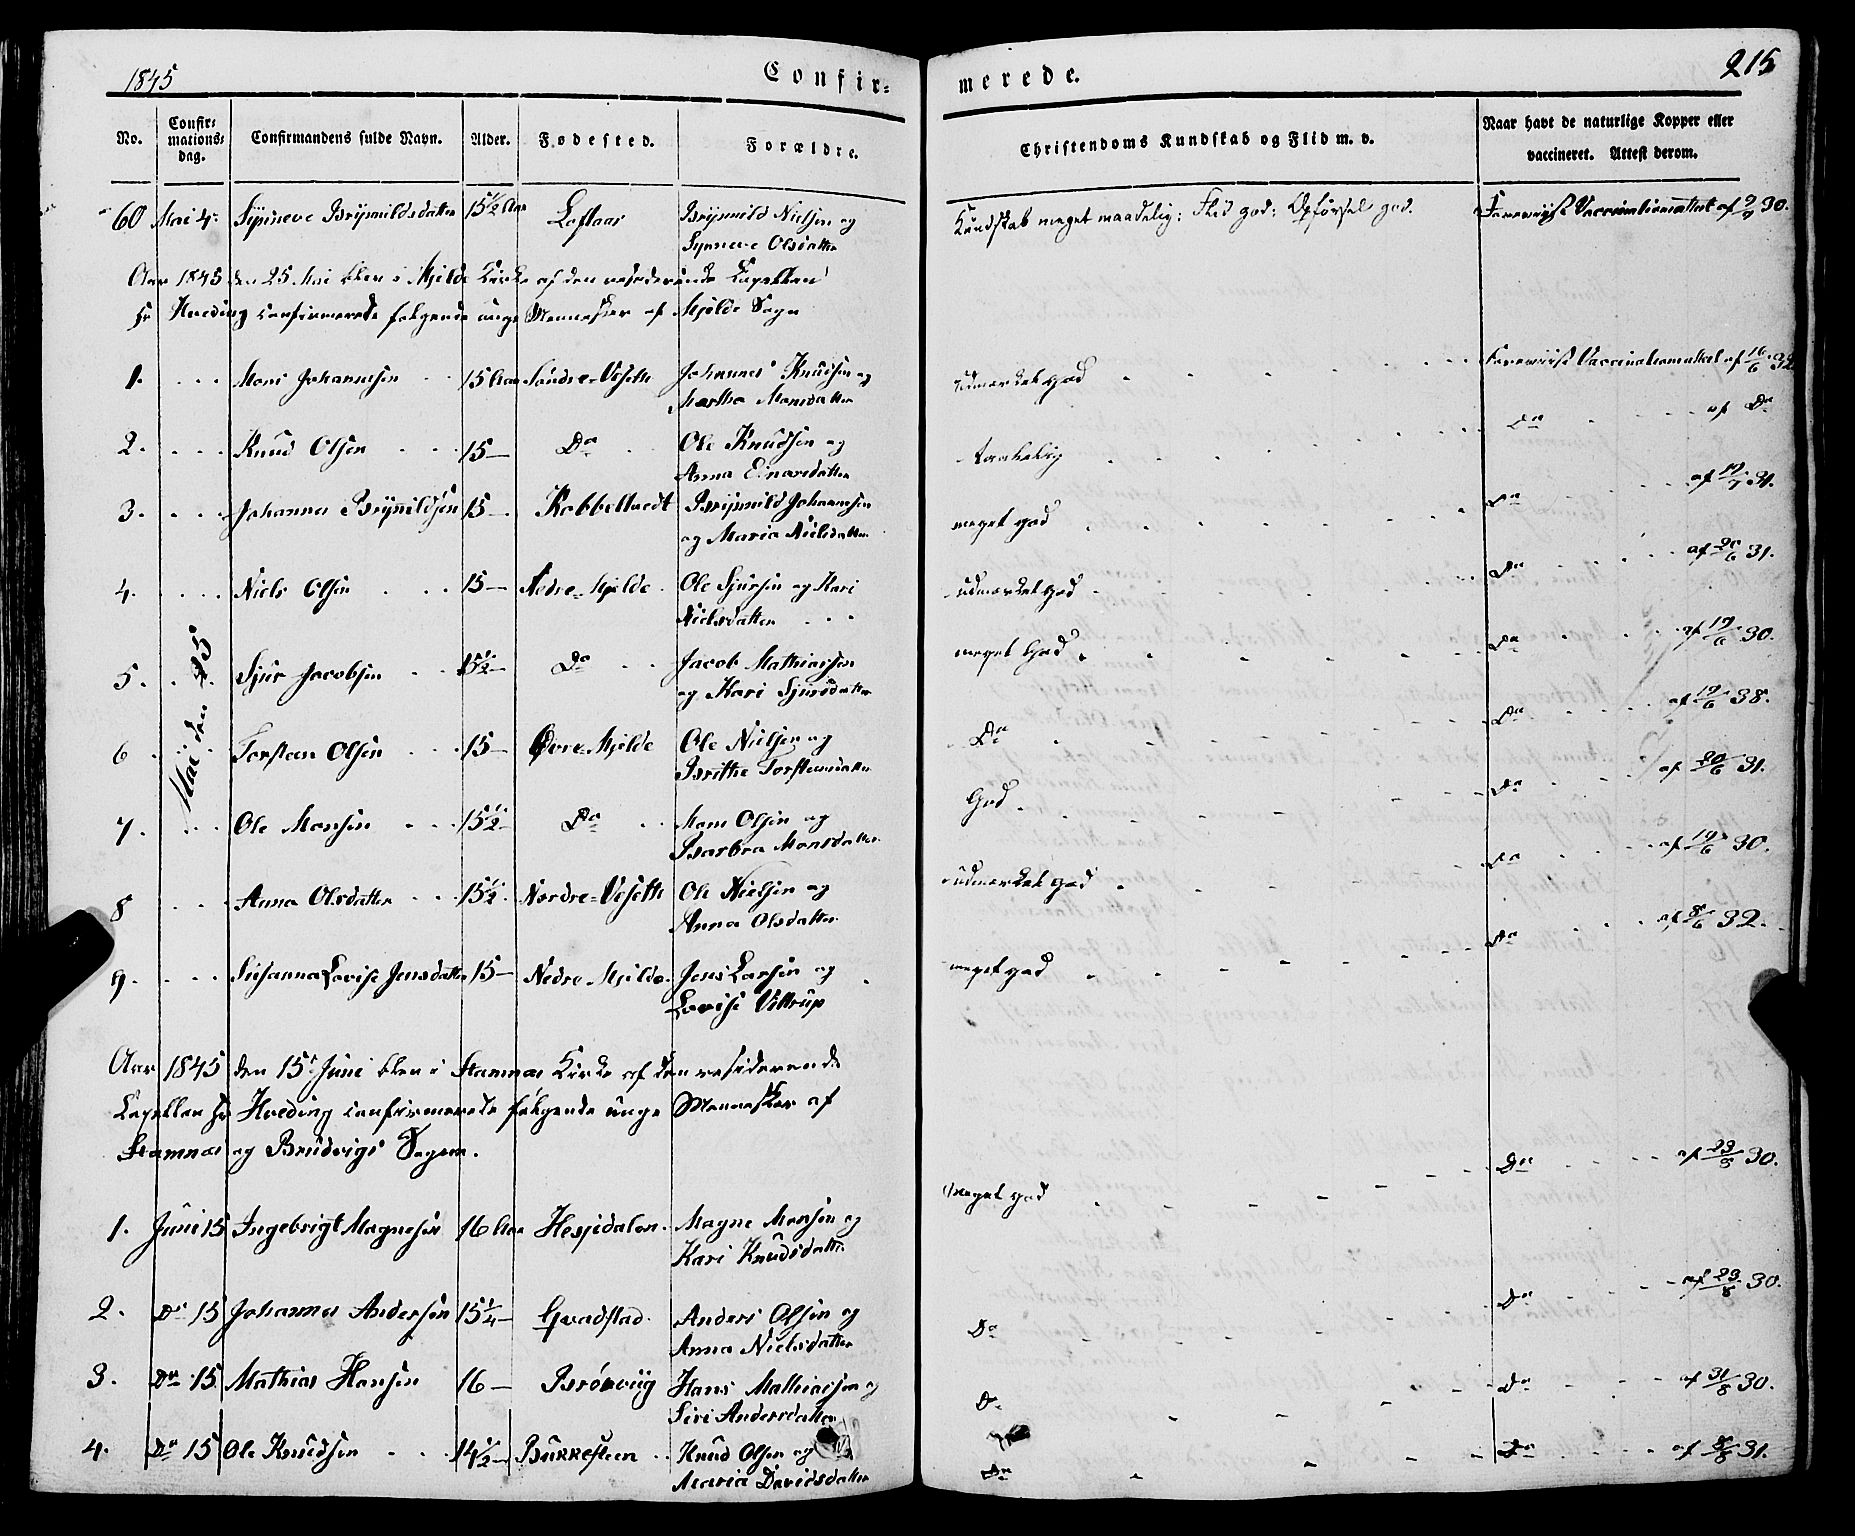 1845
Confir-
merede.
215
No.
Confir-
mations-
dag.
Confirmandens fulde Navn.
Alder.
Fødested.
Forældre.
Christendoms Kundskab og Flid m. v.
Naar havt de naturlige Kopper eller
vaccineret. Attest derom.
60 Mai 4de Synneve Brynnildsdatter 15½ Aar Loftaas Brynnild Nielsen og Kundskab meget maadelig: Flid god: Opførsel god. Foreviist Vaccinationsattest af 30.
Synneve Olsdatter
Aar 1845 den 25 Mai blev i Mjelde Kirke af den residerende Capellan
Hr Hveding confirmerede følgende unge Mennesker af Mjelde Sogn
1. Mons Johannesen 15 Aar Søndre-Veseth Johannes Knudsen og udmerket god Foreviist Vaccinationsattest af 16/6 32
Martha Monsdatter
2. Knud Olsen 15 Do Ole Knudsen og taalelig Do af Do
Anna Einarsdatter
3. Johannes Brynnildsen 15 Kobbeltvedt Brynnild Johannesen meget god Do af 31.
og Maria Nielsdatter
4. Niels Olsen 15 Nedre-Mjelde Ole Sjursen og Kari udmerket god Do af 20/6 31.
Nielsdatter
Mai den 25
5. Sjur Jacobsen 15½ Do Jacob Mathiassen meget God Do af 19/6 30.
og Kari Sjursdatter
6 Torsteen Olsen 15 Øvre-Mjelde Ole Nielsen og Do Do af 19/6 38.
Brithe Torsteensdatter
7. Ole Monsen 15½ Do Mons Olsen og God Do af 20/6 31.
Barbra Monsdatter
8 Anna Olsdatter 15½ Nordre-Veseth Ole Nielsen og udmerket god Do af 19/6 30.
Anna Olsdatter
9. Susanna Lovise Jensdatter 15 Nedre Mjelde Jens Larsen og meget god Do af 8/6 32.
Lovise Vittrup
Aar 1845 den 15de Juni blev i Stamnæs Kirke af den residerende
Capellan Hr Hveding confirmerede følgende unge Mennesker af
Stamnæs og Brudvigs Sogne.
1. Juni 15 Ingebrigt Magnesen 16 Aar Hesjedalen Magne Monsen og Meget god Do af 23/8 30.
Kari Knudsdatter
2. Do 15 Johannes Andersen 15¼ Gvadstad Anders Olsen og Do Do af 23/8 30.
Anna Nielsdatter
3. Do 15 Mathias Hansen 16 Brørviig Hans Mathiassen og Do Do af 31/8 30.
Siri Andersdatter
4. Do 15 Ole Knudsen 14½ Bukkesteen Knud Olsen og Do Do af 31.
Maria Davidsdatter